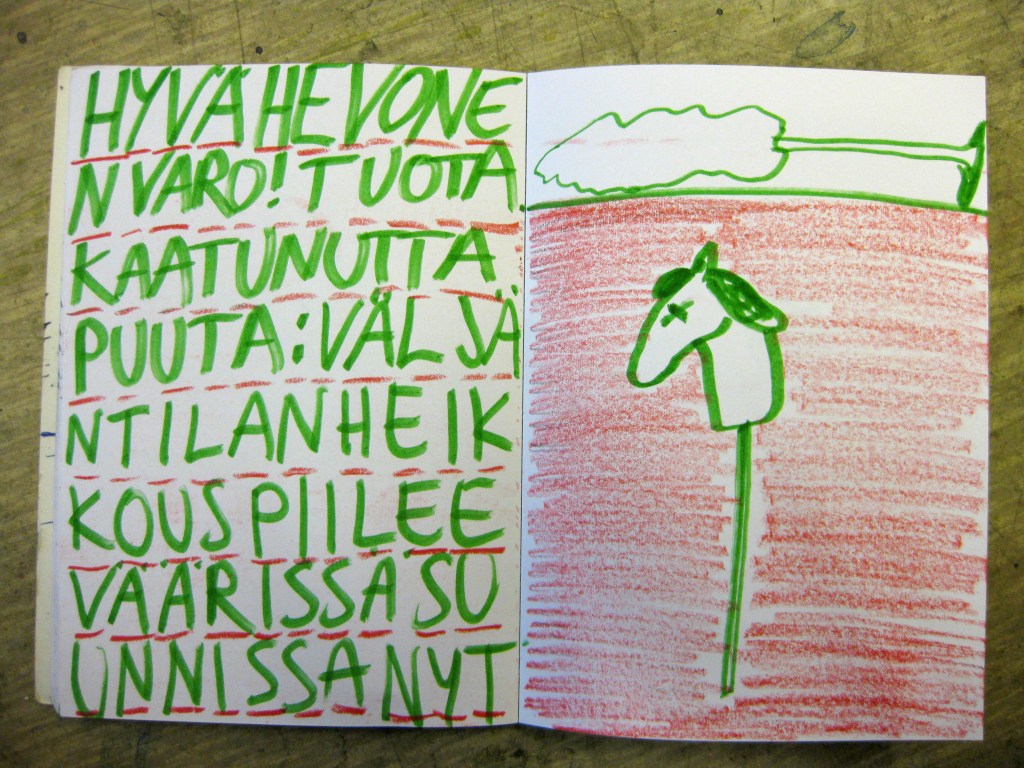 HYVÄHEVONE
NVARO! TUOTA
KAATUNUTTA
PUUTA: VÄLJÄ
NTILANHEIK
KOUSPIILEE
VÄÄRISSÄSU
UNNISSANYT